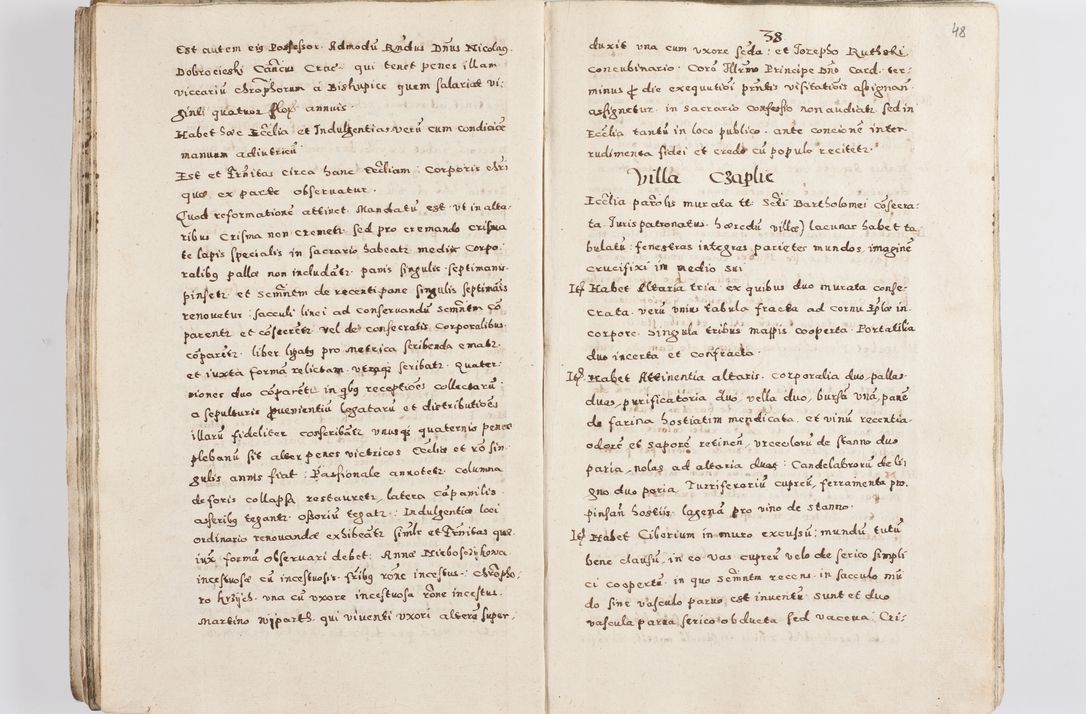 Est autem eig Possessor. Admodū Rñdus Dñus Nicolaq
Dobrocieski Cancius Crac. qui tenet penes illam
viccariū chrõphorum a Biskupice quem salariat vi-
ginti quatuor flor annuis.
Habet hæc Ecclia et Indulgentias verū cum condicioe
manuum adiutricū
Est et Frñitas circa hanc Eccliam: Corporis chri
quæ ex parte observatur.
Quod reformationē attinet. Mandatū est. vt in alta-
ribus Crisma non cremetr sed pro cremando crisma
te lapis specialis in sacrario habeatr. mediæ Corpo-
ralibq pallæ non includātr. panis singulis septimanis.
pinsetr et Semñtm de recenti pane singulis septimāis
renovetur: sacculi linei ad conservandū semñtm cō
parentr et cōsecrētr vel de consecratis Corporalibus.
cōparētr. liber ligatq pro metrica scribenda ematr.
et iuxta formā relictam. vtraqz scribatr. Quater-
niones duo cōparētr in qbq receptiões collectarū
a sepulturis provenientiū legatarū et distributiões
illarū fideliter conscribātr vnusqz quaternio penes
plebanū sit alter penes victricos Ecclię et rō sin-
gulis annis fiat: Passionale annotetr columna
deforis collapsa restauretr, latera cāpanilis
asseribq tegantr. Ossoriū tegatr: Indulgentiæ loci
ordinario renovandæ exhibeātr simłr et Frñitas quæ
iux formā observari debet: Annæ Nieboszczykowa
incestuosæ cū incestuosis fribq rōne incestus: Chrõpho-
ro krzijch. vna cū vxore incestuosa rōne incestus.
Martino Niparth. qui viventi vxori alterā super-
38
48
duxit vna cum vxore scda: et Iozepho Rutkski
concubinario. Corā Illrmo Principe Dño Card. ter-
minus p die exequutiōi prñtis visitatiōis assignan
assignetur. in sacrario confessio non audiatr sed in
Ecclia tantū in loco publico. ante concionē inter
rudimenta fidei et credo cū populo recitetr.
Villa Czaplie
Ecclia parōlis murata tt. Scti Bartholomei cōsecra-
ta. Iurispatronatus. hæredū villæ) lacunar habet ta
bulatū: fenestras integras, parietes mundos, imaginē
crucifixi in medio sui
Itē Habet Altaria tria ex quibus duo murata conse-
crata. verū vnius tabula fracta ad cornu Eplæ in.
corpore. Singula tribus mappis cooperta. Portatilia
duo incerta et confracta.
Itē Habet Attinentia altaris. corporalia duo, pallas
duas, purificatoria duo, vella duo, bursā vnā, panē
de farina hostiatim mendicata. et vinū recentia
odorē et saporē retinen, vrceolorū de stanno duo
paria, nolas ad altaria duas: Candelabrorū de li-
gno duo paria Turriferariū cupreū, ferramenta pro.
pinsan hostiis. lagenā pro vino de stanno.
Itē Habet Ciborium in muro excussū: mundū tutū
bene clausū, in eo vas cupreū velo de serico simpli
ci coopertū, in quo semñtm recens. in sacculo mū
do sine vasculo parvo est inventū sunt et duo
vascula parva serico obducta sed vacena. Cri-